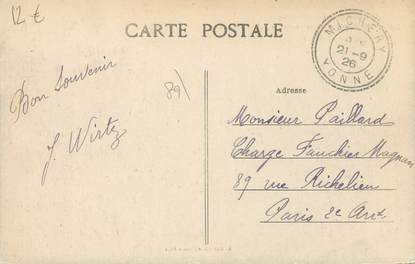 12 €
CARTE POSTALE
MICHERY
21-9
26
YONNE
Bon Souvenir
J. Wirtz
89
Adresse
Monsieur Paillard
Charge Fauchier Magnan
89 rue Richelieu
Paris 2e Arrt